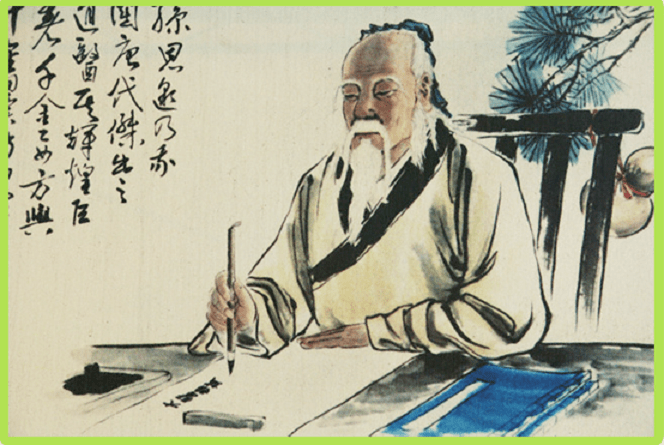 孫思邈乃我
國唐代傑出之
道醫其輝煌巨
著千金要方與